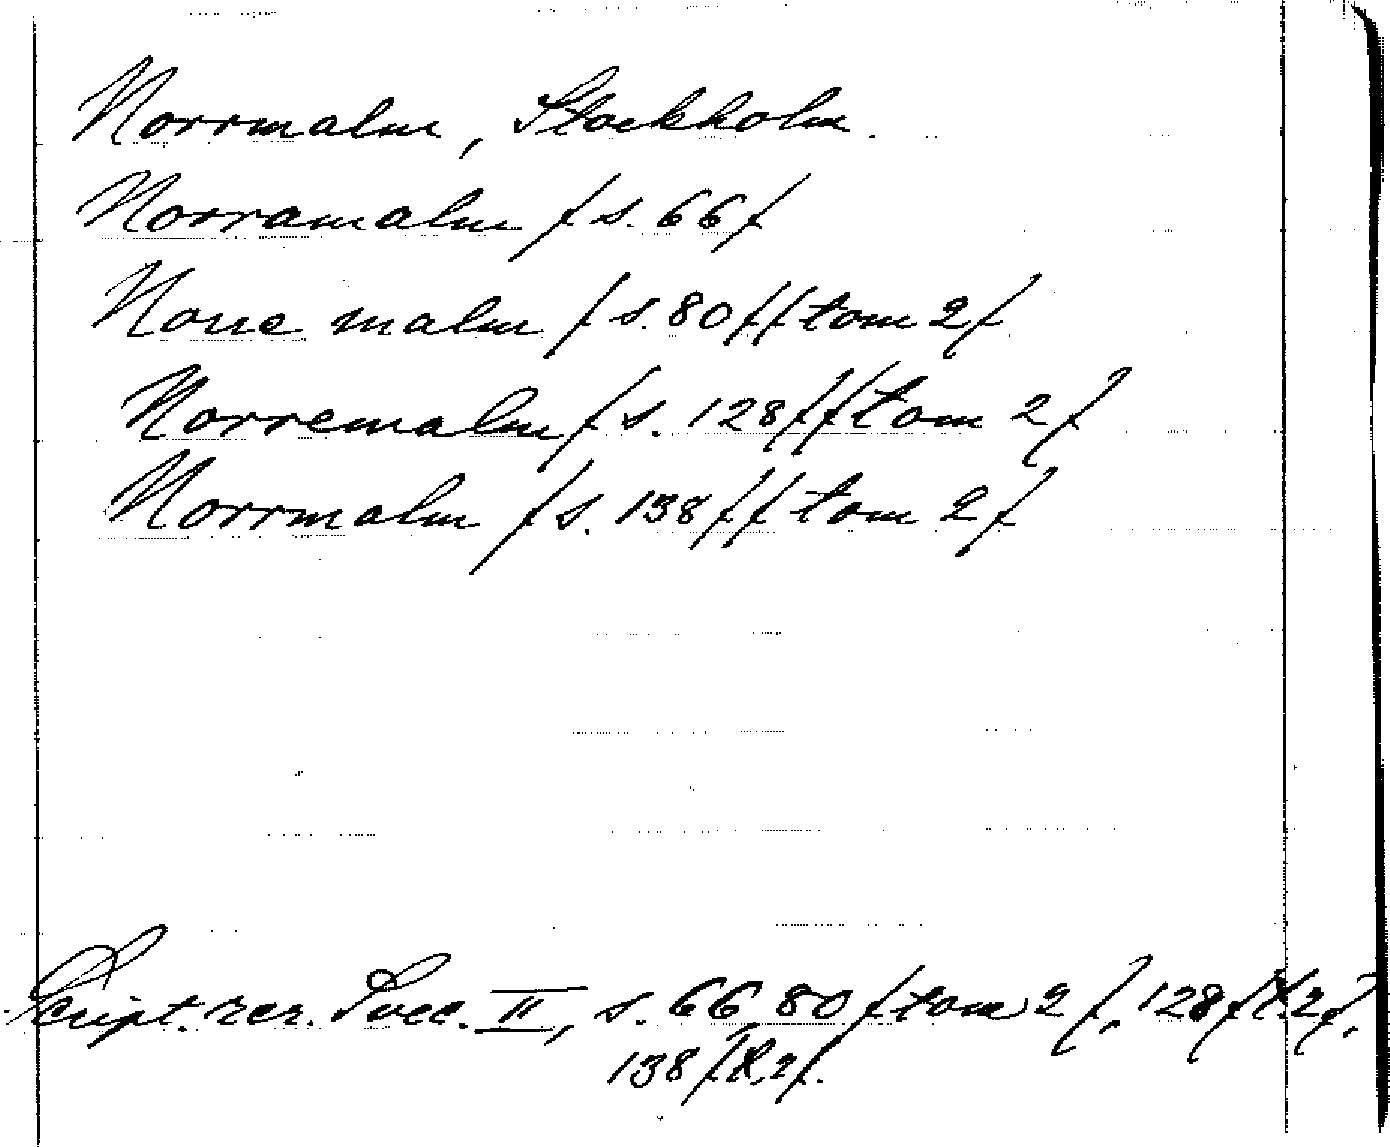 Norrmalm, Stockholm.
Norramalm / s. 66 /
Norre malm / s. 80 / / tom 2 /
Norremalm / s. 128 / / tom 2 /
Norrmalm / s. 138 / / tom 2 /
Script. rer. Svec. II, s. 66 80 / tom 2 /, 128 / t. 2 /,
138 / t. 2 /.